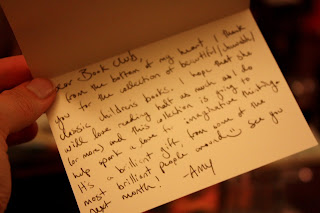 Dear Book Club,
from the bottom of my heart, I thank
you for the collection of beautiful
classic children's books. I hope that she
will love reading half as much as I do
(or more) and this collection is going to
help spark a love for imaginative
It's a brilliant gift, from some of the
most brilliant people around :) See you
next month. -Amy